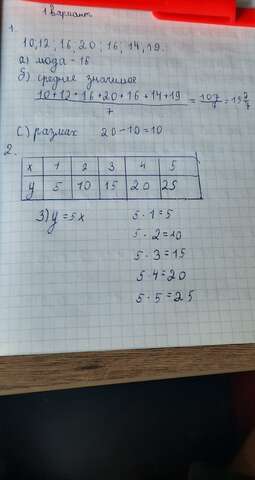 1 вариант
1.
10, 12, 16, 20, 16, 14, 19.
а) мода - 16
б) среднее значение
10+12+16+20+16+14+19 / 7 = 107/7 = 15 2/7
с) размах 20-10=10
2.
x 1 2 3 4 5
y 5 10 15 20 25
3) y=5x 5·1=5
5·2=10
5·3=15
5·4=20
5·5=25